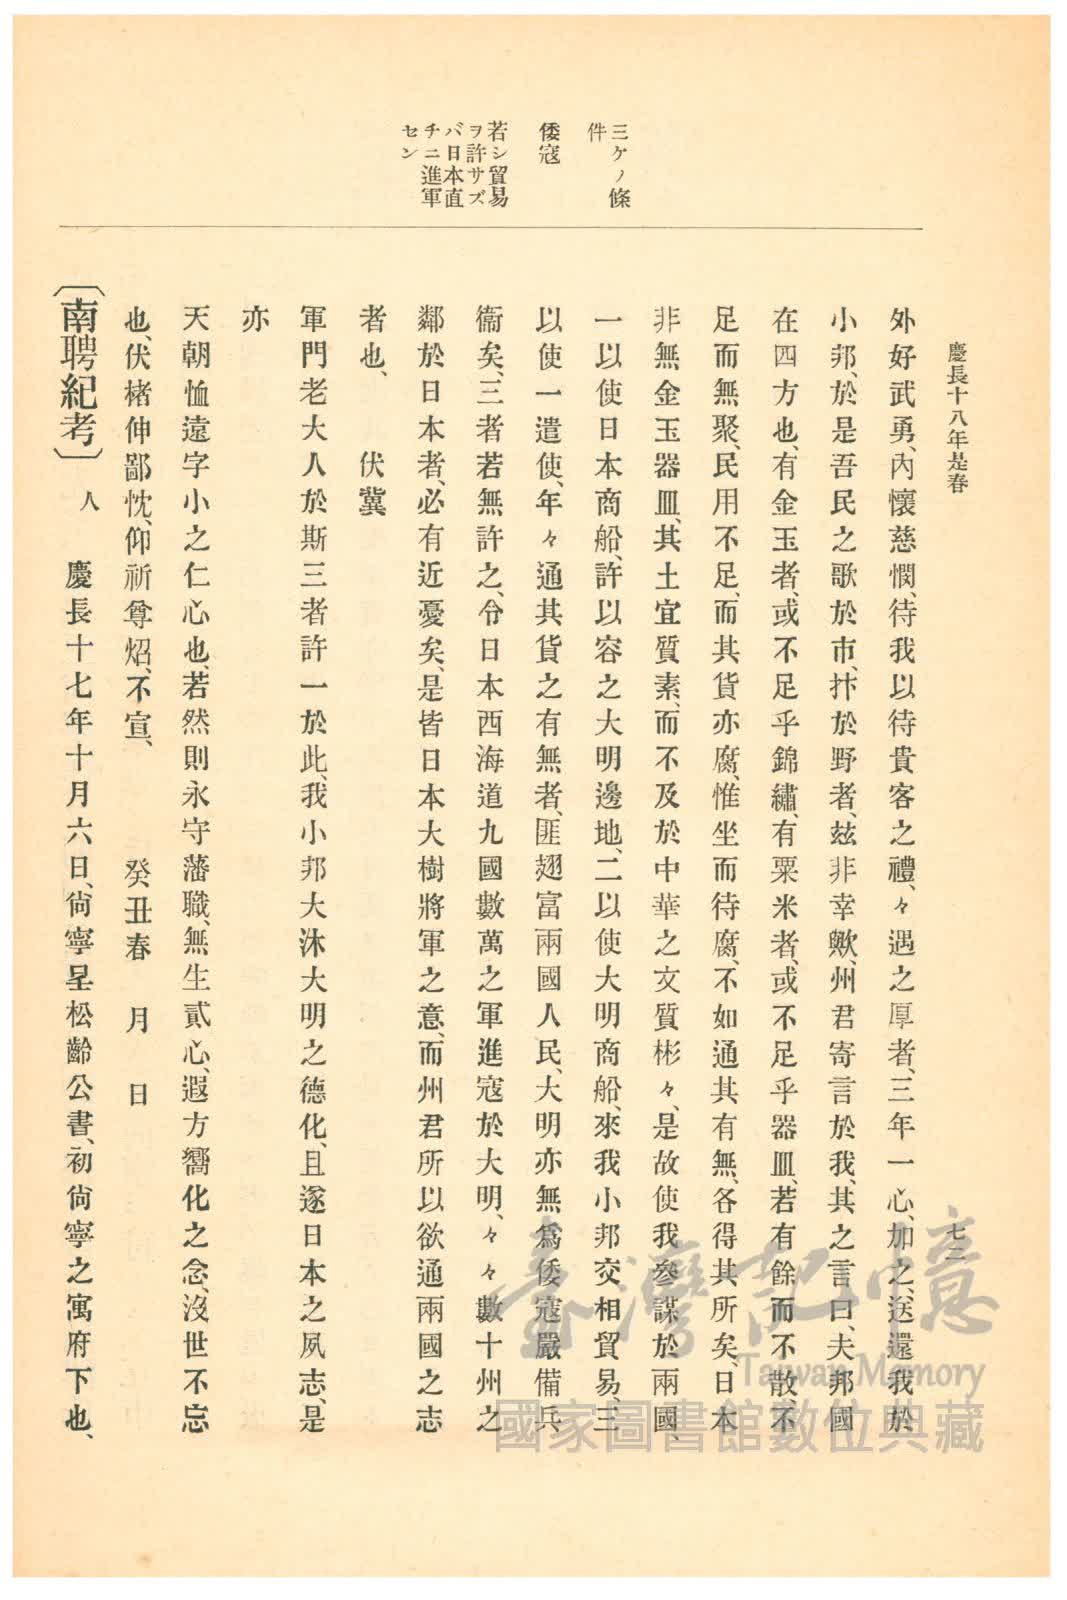 慶長十八年是春
七二
三ケノ條
件
倭寇
若シ貿易
ヲ許サズ
バ日本直
チニ進軍
セン
外好武勇、內懷慈憫、待我以待貴客之禮、々遇之厚者、三年一心、加之、送還我於
小邦、於是吾民之歌於市、抃於野者、玆非幸歟、州君寄言於我、其之言曰、夫邦國
在四方也、有金玉者、或不足乎錦繡、有粟米者、或不足乎器皿、若有餘而不散、不
足而無聚、民用不足、而其貨亦腐、惟坐而待腐、不如通其有無、各得其所矣、日本
非無金玉器皿、其土宜質素、而不及於中華之文質彬々、是故使我參謀於兩國、
一以使日本商船、許以容之大明邊地、二以使大明商船、來我小邦交相貿易、三
以使一遣使、年々通其貨之有無者、匪翅富兩國人民、大明亦無爲倭寇嚴備兵
衞矣、三者若無許之、令日本西海道九國數萬之軍進寇於大明、々々數十州之
鄰於日本者、必有近憂矣、是皆日本大樹將軍之意、而州君所以欲通兩國之志
者也、伏冀
軍門老大人於斯三者許一於此、我小邦大沐大明之德化、且遂日本之夙志、是
亦
天朝恤遠字小之仁心也、若然則永守藩職、無生貳心、遐方嚮化之念、沒世不忘
也、伏楮伸鄙忱、仰祈尊炤、不宣、 癸丑春 月 日
〔南聘紀考〕 人 慶長十七年十月六日、尙寧呈松齡公書、初尙寧之寓府下也、
臺灣記憶
Taiwan Memory
國家圖書館數位典藏